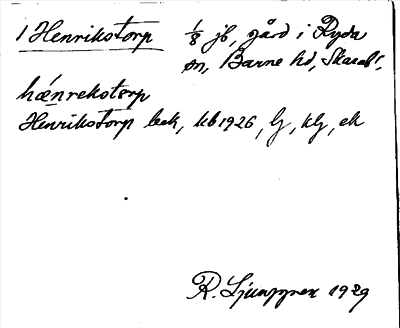 1 Henrikstorp 1/8 jb, gård i Ryda
sn, Barne hd, Skarab.
hǽnrekstorp
Henrikstorp bek, kb 1926, lj, klj, ek
R. Ljunggren 1929